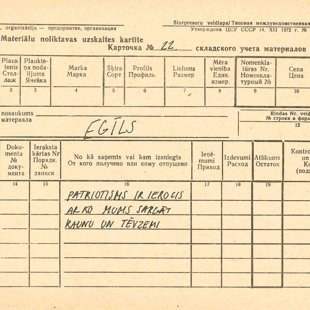 , organizācija — предприятие, организация
Starpresoru veidlapa/Типовая междуведомственная
Утверждена ЦСУ СССР 14. XII 1972 г. №
Materiālu noliktavas uzskaites kartīte
Карточка № 22 складского учета материалов
Plaukts Стел-лаж
Plaukta nodalījums Ячейка
Marka Марка
Šķira Сорт
Profils Профиль
Izmērs Размер
Mēra vienība Един. измер.
Nomenklatūras Nr. Номенклатурный №
Cena Цена
2 3 4 5 6 7 8 9 10
nosaukums
материала
EGĪLS
Rindas Nr. veidlapā
№ строки в форме
12
Dokumenta № документа
Ieraksta kārtas Nr. Порядк. № записи
No kā saņemts vai kam izsniegts
От кого получено или кому отпущено
Ieņēmumi Приход
Izdevumi Расход
Atlikums Остаток
14 15 16 17 18 19
PATRIOTISMS IR IEROCIS
AR KO MUMS SARGĀT
KAUNU UN TĒVZEMI